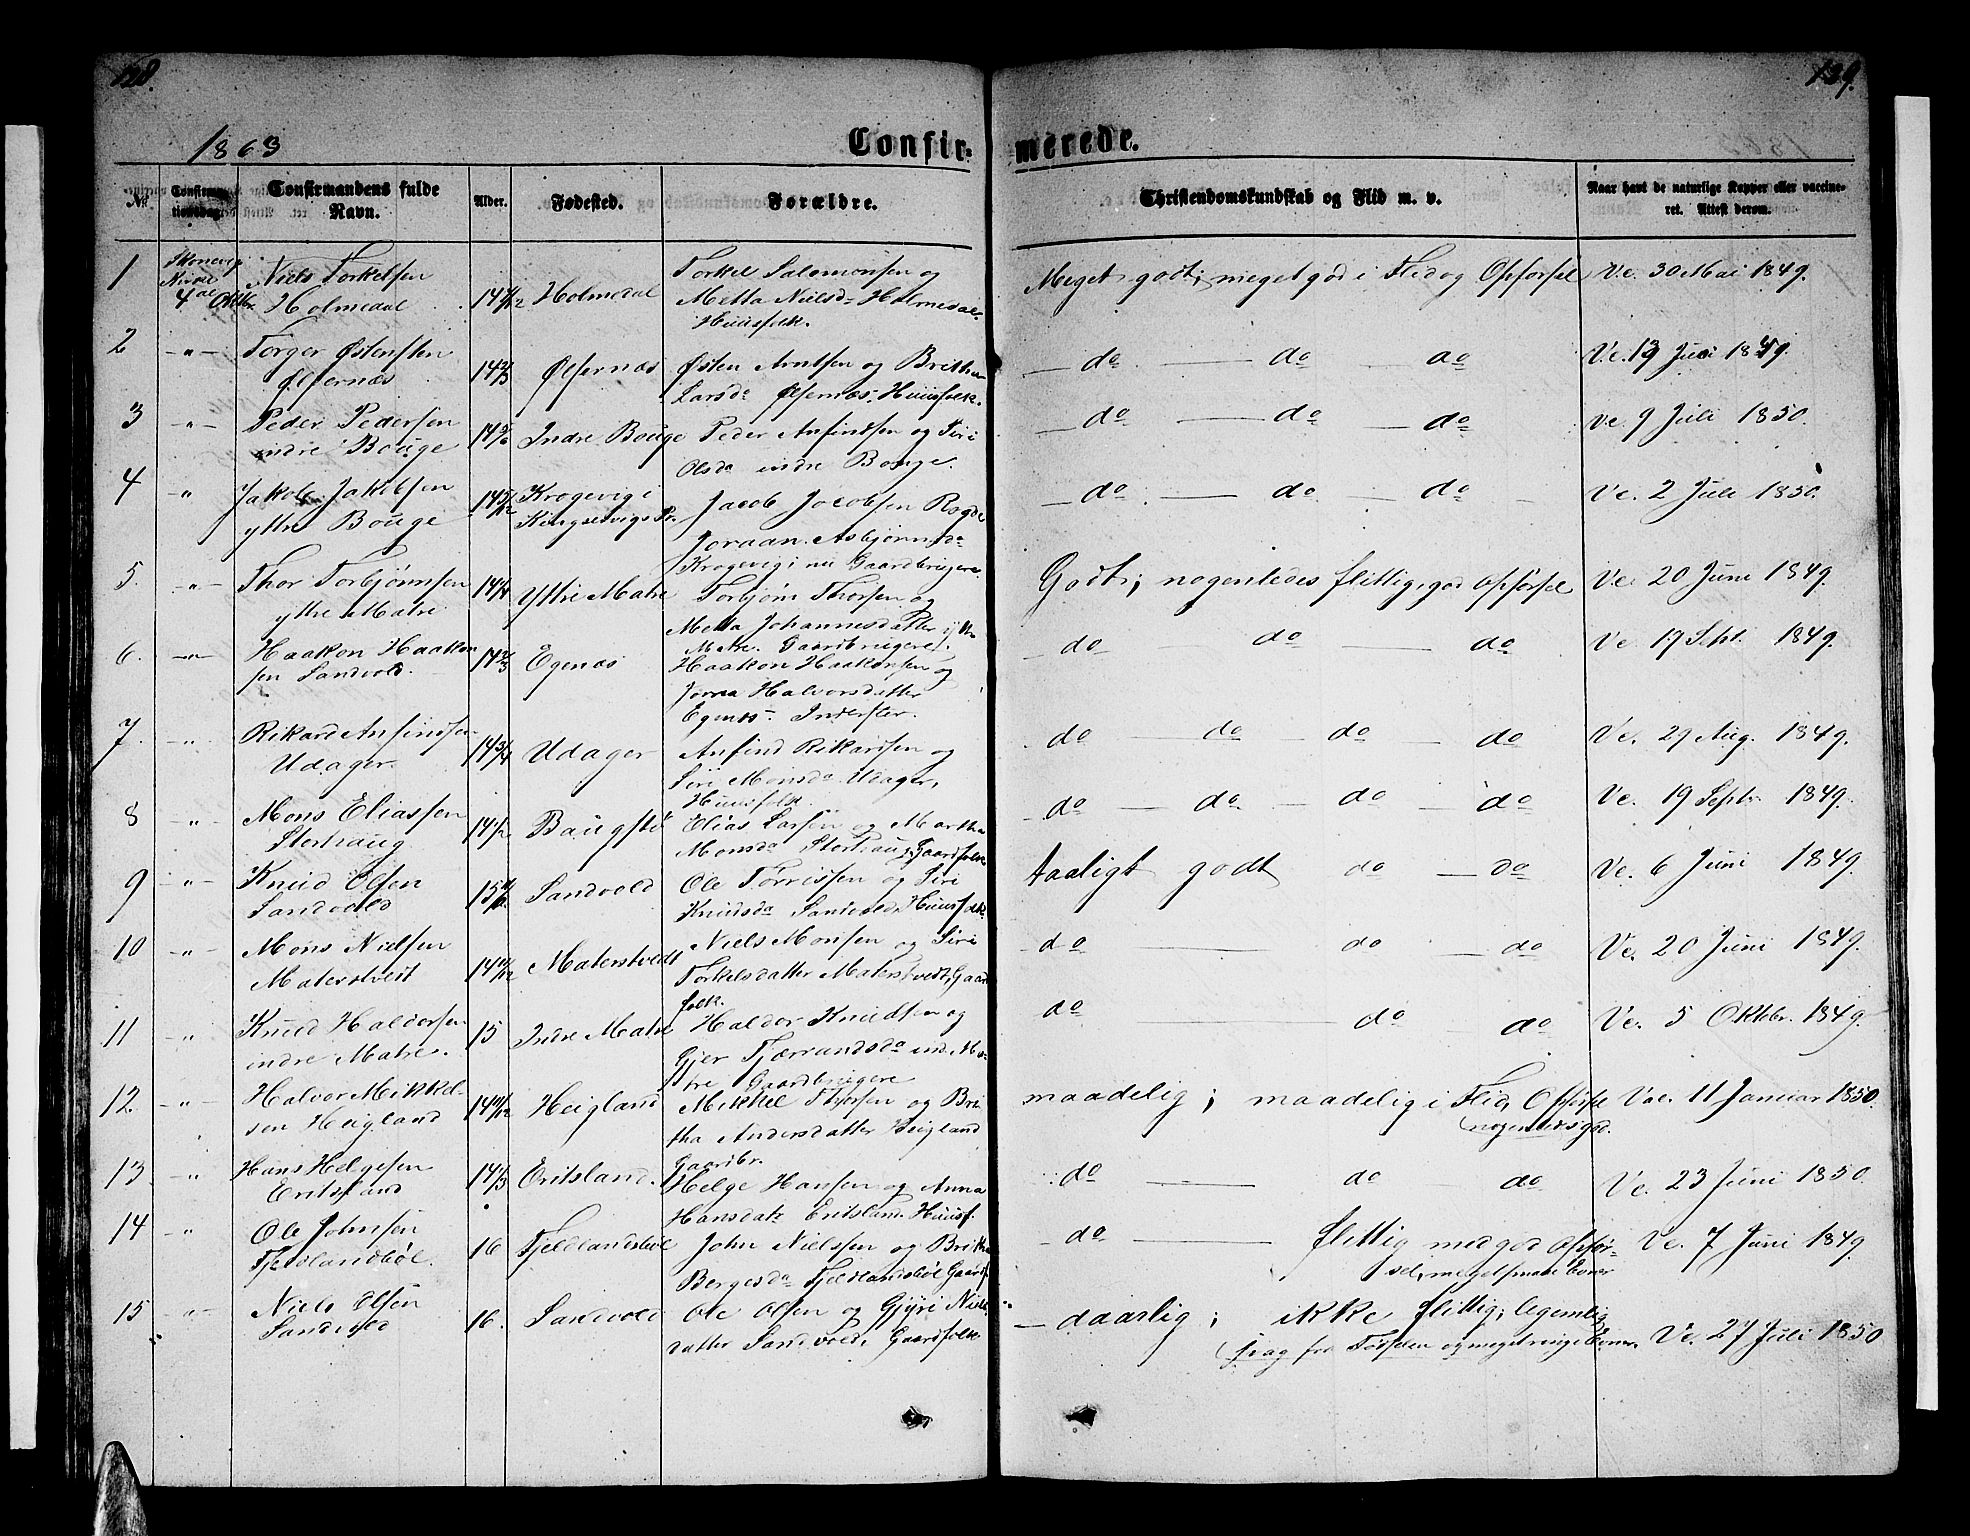 128.
139.
1863
Confir-
merede.
№
Confirma-
tionsdag.
Confirmandens fulde
Navn.
Alder.
Fødested.
Forældre.
Christendomskundskab og Flid m. v.
Naar havt de naturlige Kopper eller vaccine-
ret. Attest derom.
1
Skonevig
Kirke
4de Oktbr
Niels Torkelsen
Holmedal
14 7/12
Holmedal
Torkel Salomonsen og
Metta Nielsda Holmedal
Huusfolk.
Meget godt; meget god i Flid og Opførsel
Ve. 30 Mai 1849.
2
-"-
Torger Østensen
Ølfernæs
14 2/3
Ølfernæs
Østen Arntsen og Britha
Larsda Ølfernæs. Huusfolk.
do do do
Ve. 19 Juni 1849.
3
-"-
Peder Pedersen
indre Bouge
14 5/6
Indre Bouge
Peder Anfindsen og Siri
Olsda indre Bouge.
do do do
Ve. 9 Juli 1850.
4
"
Jakob Jakobsen
ytre Bouge
14 5/12
Krogevig i
Kingservigs Pr.
Jacob Jacobsen Rogde
Joraan Asbjørnsda
Krogevig i nu Gaardbrugere
do do do
Ve. 2 Juli 1850.
5.
-"-
Thor Torbjørnsen
ytre Matre
14 1/4
Yttre Matre
Torbjørn Thorsen og
Metta Johannesdatter ytre
Matre. Gaardbrugere.
Godt; nogenledes flittig, god Opførsel
Ve. 20 Juni 1849.
6.
-"-
Haakon Haakon
sen Sandvold.
14 2/3
Egenæs
Haakon Haakonsen og
Jorna Halvorsdatter
Egenæs. Inderster.
do do do
Ve. 19 Sept. 1849.
7.
-"-
Rikard Anfindsen
Udager.
14 3/4
Udager
Anfind Rikardsen og
Siri Monsda Udager,
Huusfolk.
do do do do
Ve. 29 Aug. 1849.
8
-"-
Mons Eliassen
Storhaug
14 1/2
Baugstø
Elias Larsen og Martha
Monsda Storhaug, Gaardfolk
do do do do
Ve. 19 Septr 1849.
9
-"-
Knud Olsen
Sandvold
Sandvold
Ole Torrissen og Siri
Knudsda Sandvold, Huusfolk.
Taaligt godt do do
Ve. 6 Juni 1849.
10
-"-
Mons Nielsen
Materstvedt
14 11/12
Materstvedt
Niels Monsen og Siri
Torkelsdatter Materstvedt, Gaard
folk.
do do do
Ve. 20 Juni 1849.
11
-"-
Knud Haldorsen
indre Matre.
15
Indre Matre
Haldor Knudsen og
Gjer Fjærrandsda ind. Ma-
tre Gaardbrugere
do do do
Ve. 5 Oktbr. 1849.
12.
-"-
Halvor Mikkel-
sen Heigland
14 11/12
Heigland
Mikkel Thorsen og Bri
tha Andersdatter Heigland
Gaardbr.
maadelig; maadelig i Flid, Opførsel
nogenledsgod.
Vac. 11 Januar 1850.
13
-"-
Hans Helgesen
Eritsland
14 1/3
Eritsland.
Helge Hansen og Anna
Hansdatr Eritsland. Huusf.
do do do
Ve. 23 Juni 1850.
14
"
Ole Johnsen
Fjeldlandsbøl.
16
Fjeldlandsbøl
John Nielsen og Britha
Bergesda Fjeldlandsbøl Gaardf.
do flittig med god Opfør-
sel, meget smaae Evner
Ve. 7 Juni 1849
15
-"-
Niels Olsen
Sandvold
16.
Sandvold
Ole Olsen og Gjyri Niels
datter Sandvold, Gaardfolk
daarlig; ikke flittig; legemlig
svag fra Fødselen og meget ringe Evner.
Ve. 27 Juli 1850